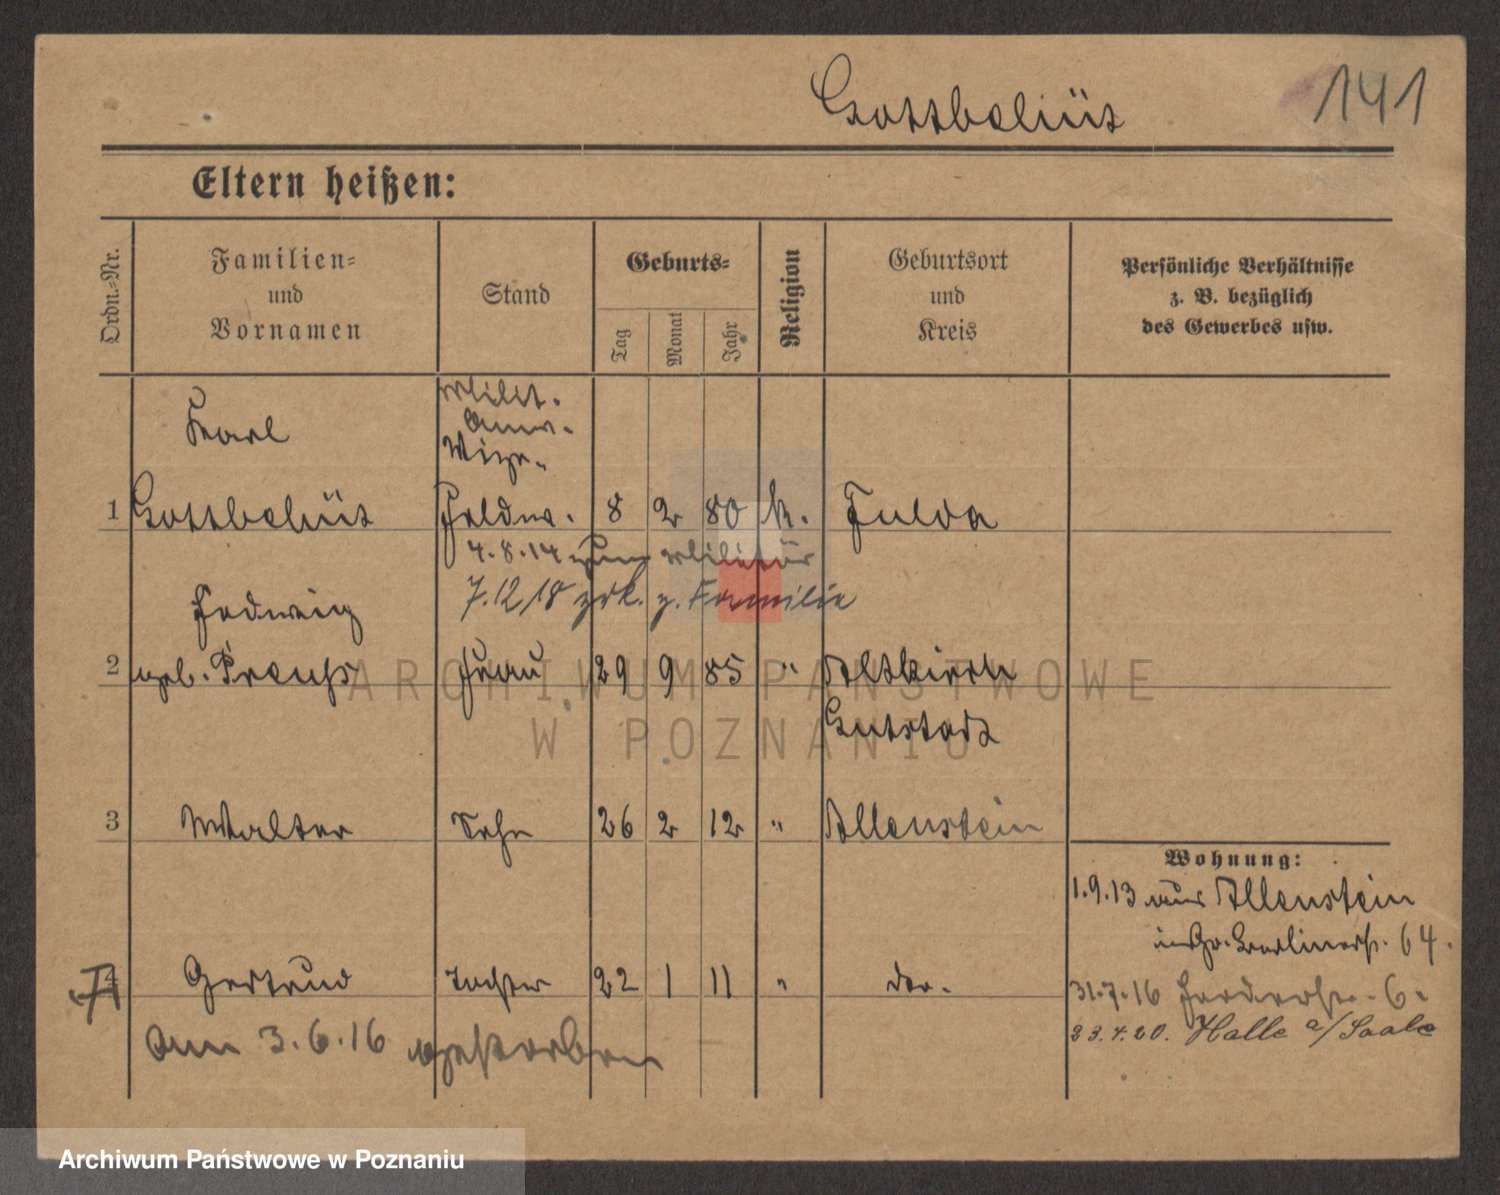 Gottbehüt 141
Eltern heißen:
Ordn.-Nr.
Familien- und Vornamen
Stand
Geburts-
Tag
Monat
Jahr
Religion
Geburtsort und Kreis
Persönliche Verhältnisse
z. B. bezüglich
des Gewerbes usw.
Karl Milit.
Anw.
Vize-
1 Gottbehüt Feldw. 8 2 80 k. Fulda
4.8.14 zum Militär
7.12.18 zrk. z. Familie
Hedwig
2 geb. Preuß Frau 29 9 85 " Altkirch
Gutstadt
3 Walter Sohn 26 2 12 " Allenstein
Wohnung:
1.9.13 aus Allenstein
in Gr. Berlinerstr. 64.
4 Gertrud Tochter 22 1 11 " do.
31.7.16 6.
23.4.20. Halle a/Saale
am 3.6.16 gestorben
ARCHIWUM PAŃSTWOWE
W POZNANIU
Archiwum Państwowe w Poznaniu